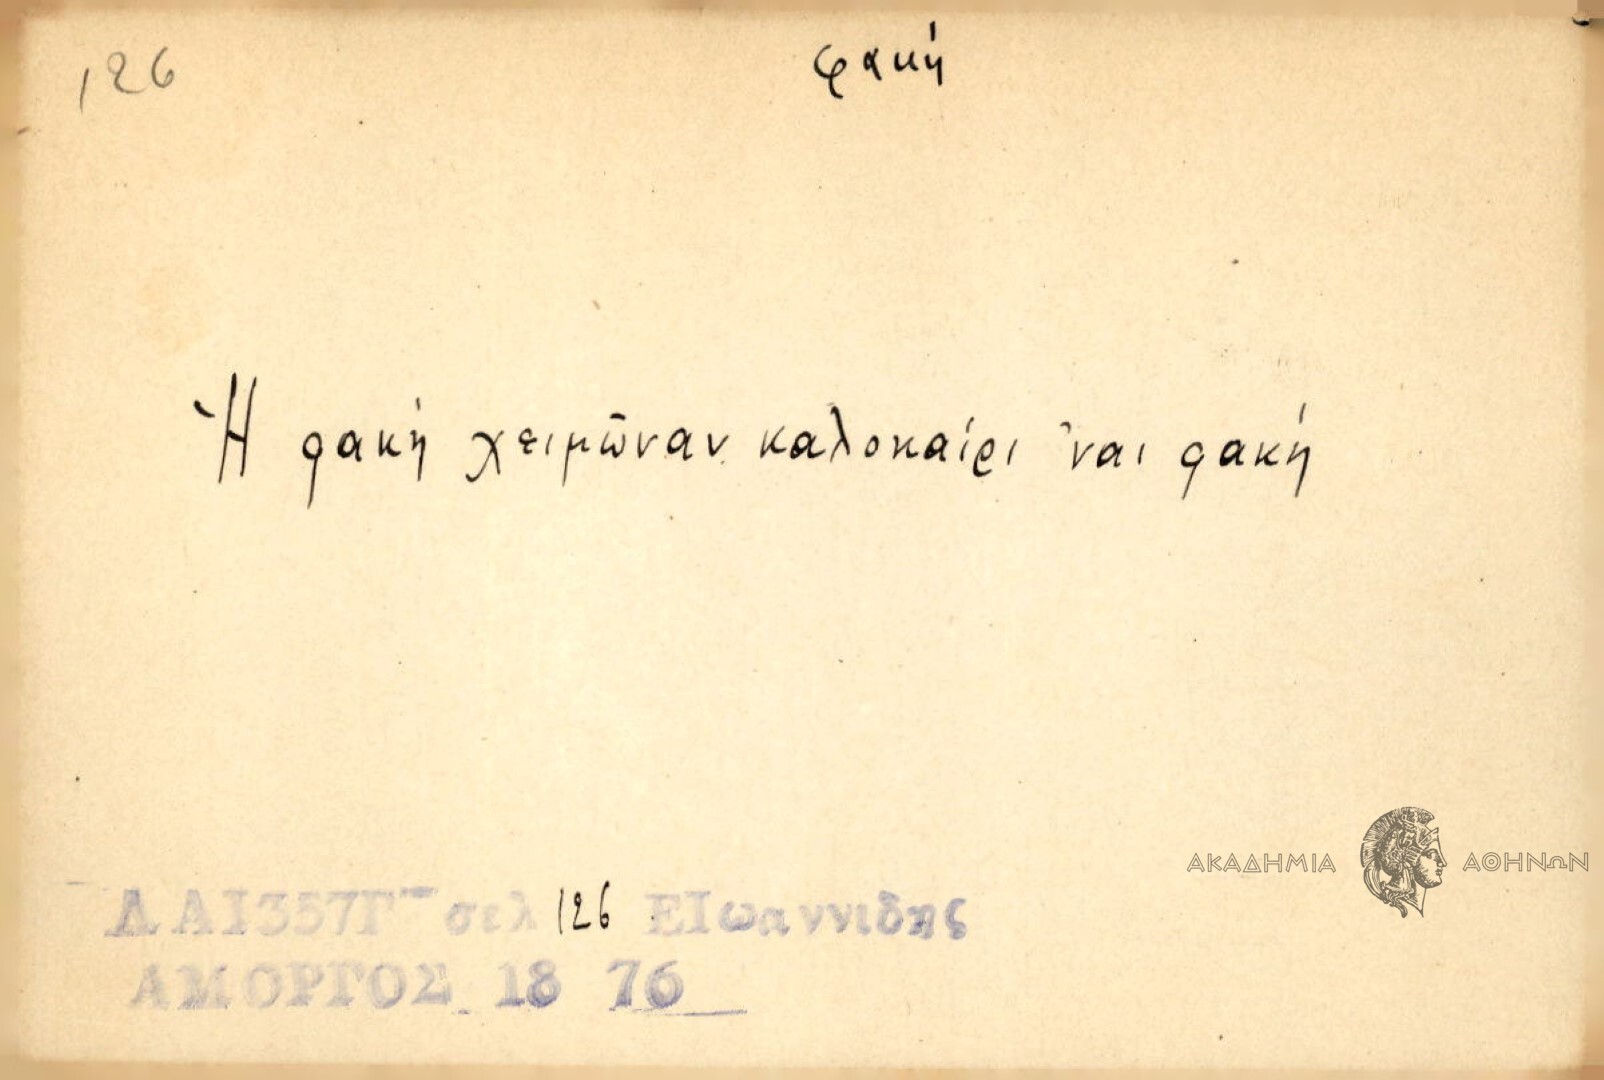 126
φακή
Ἡ φακή χειμῶναν καλοκαίρι 'ναι φακή
ΑΚΑΔΗΜΙΑ ΑΘΗΝΩΝ
Λ ΑΙ357Γ σελ 126 ΕΙωαννιδης
ΑΜΟΡΓΟΣ 18 76